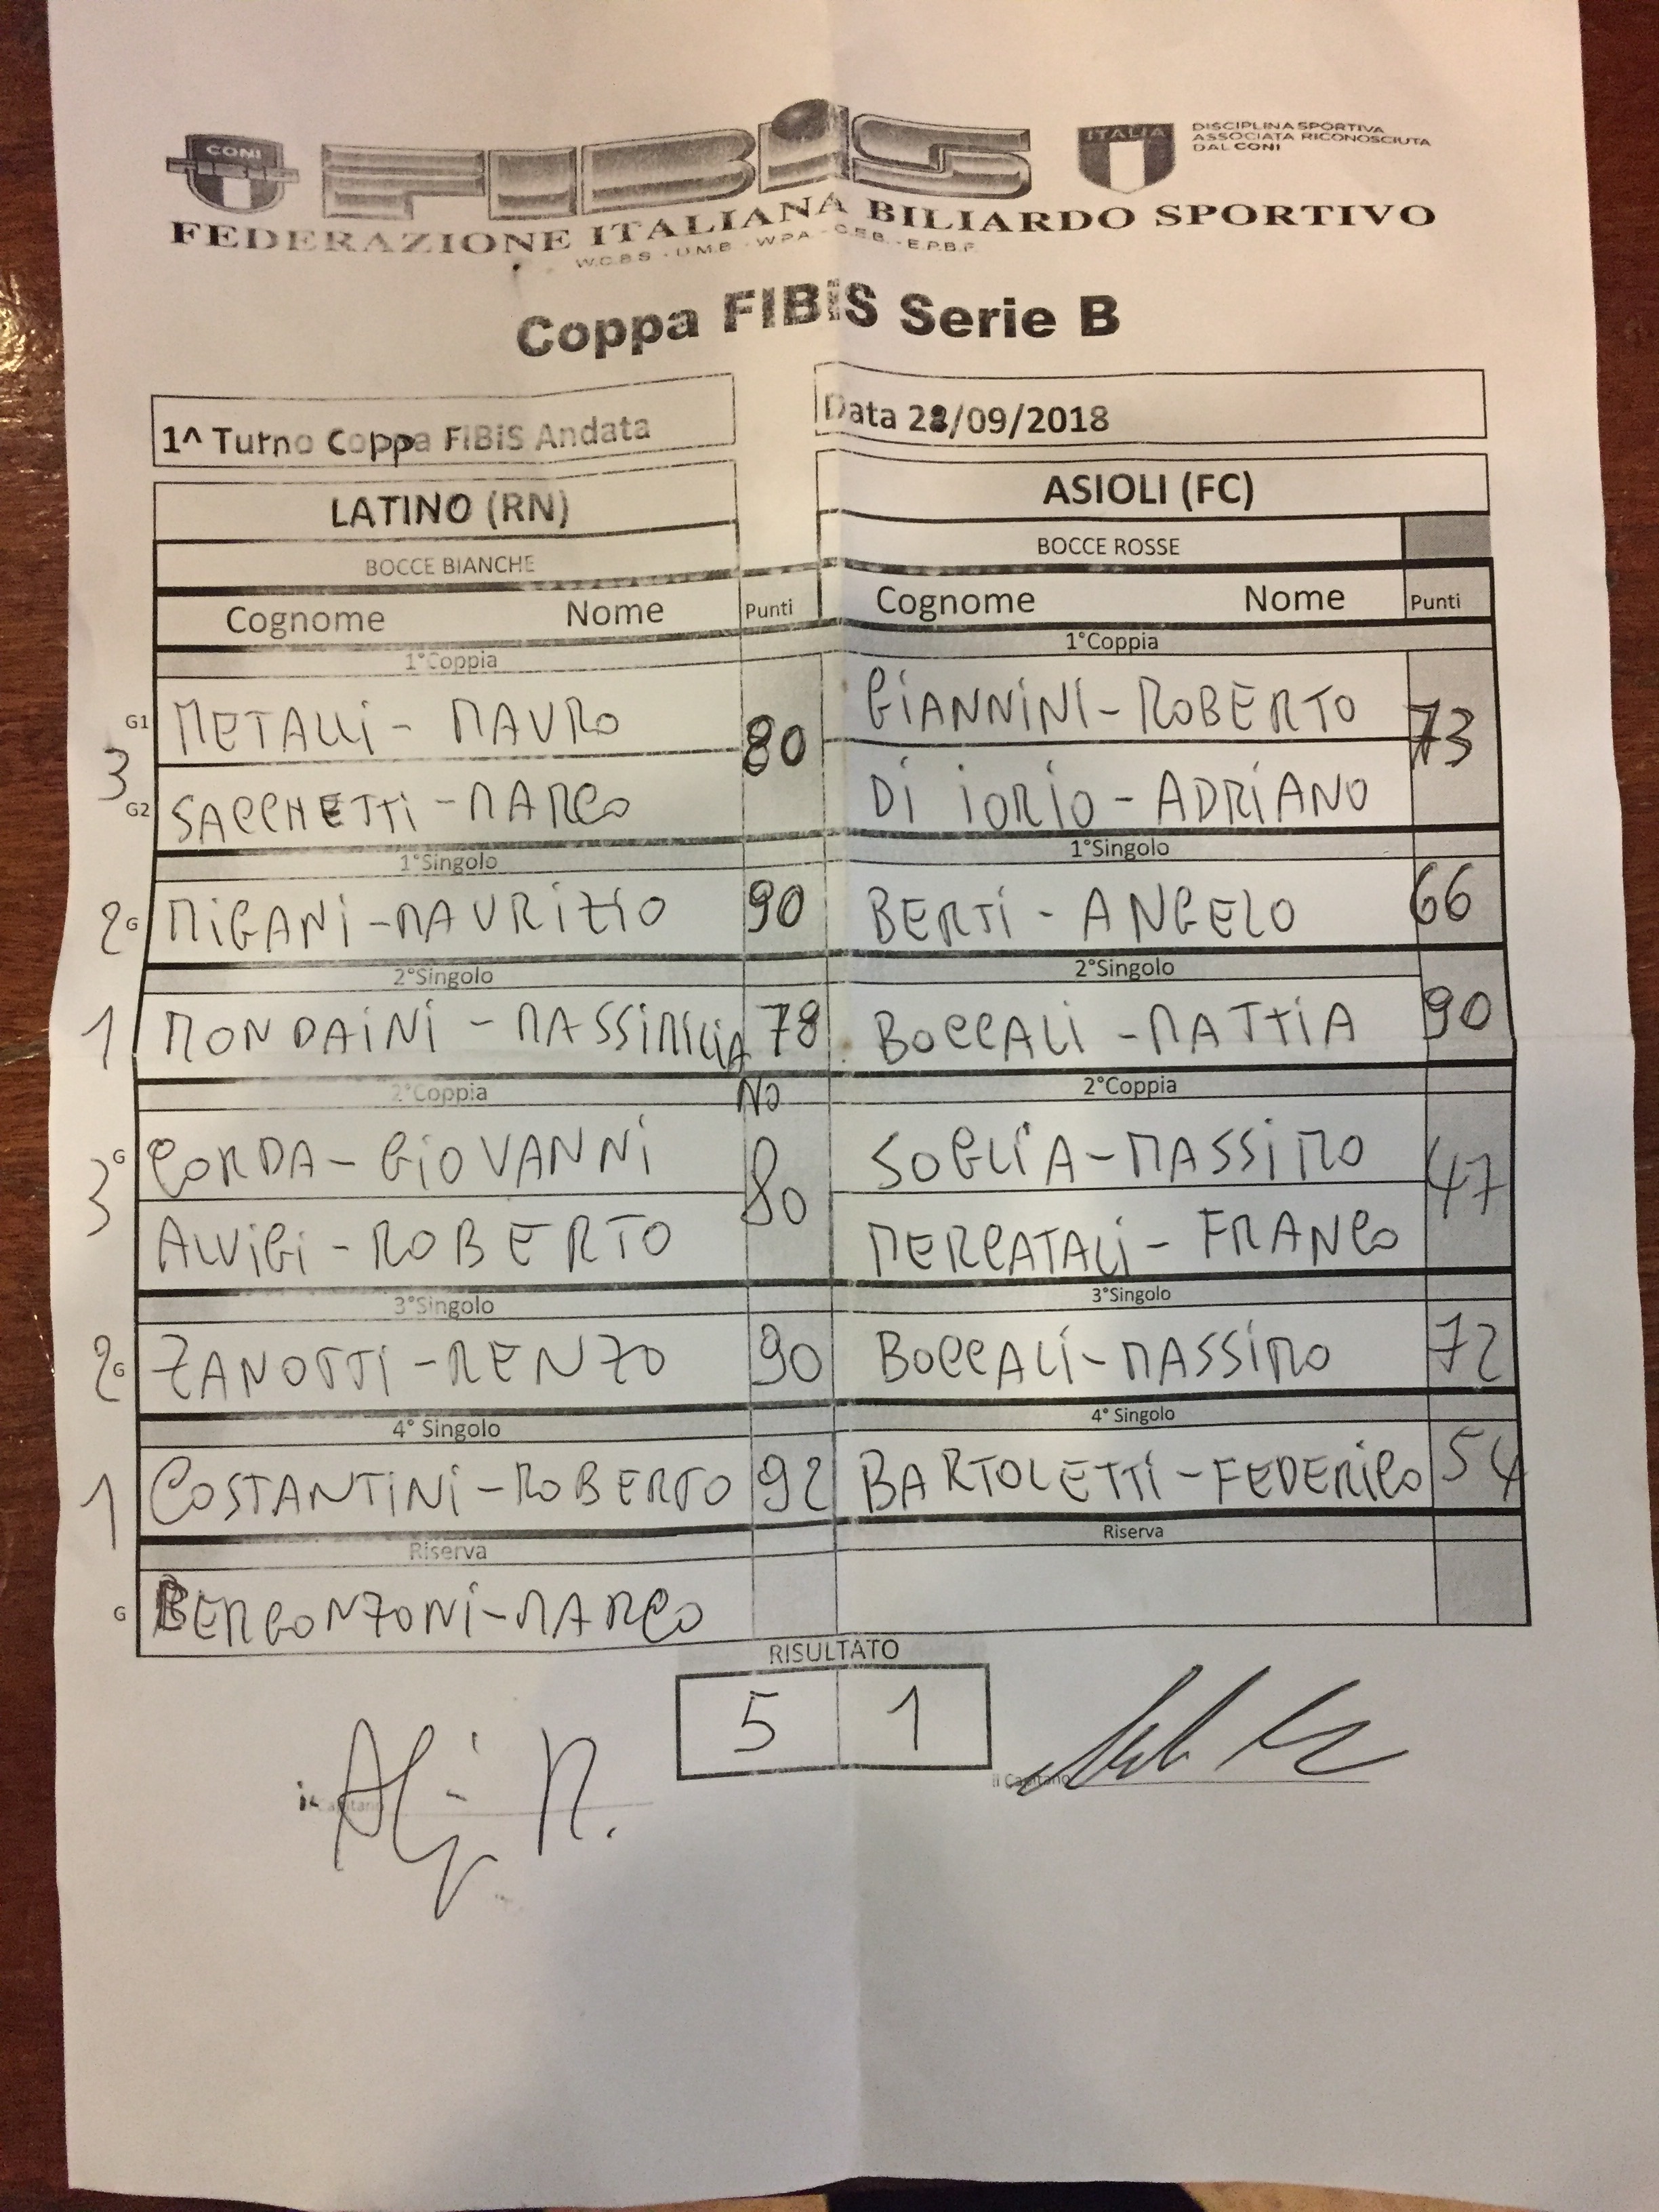 CONI FIBiS ITALIA DISCIPLINA SPORTIVA
ASSOCIATA RICONOSCIUTA
DAL CONI
FEDERAZIONE ITALIANA BILIARDO SPORTIVO
W.C.B.S - U.M.B - W.P.A - C.E.B. - E.P.B.F.
Coppa FIBiS Serie B
1^ Turno Coppa FIBiS Andata Data 28/09/2018
LATINO (RN) ASIOLI (FC)
BOCCE BIANCHE BOCCE ROSSE
Cognome Nome Punti Cognome Nome Punti
1°Coppia 1°Coppia
G1 METALLI - MAURO GIANNINI - ROBERTO
3 80 73
G2 SACCHETTI - MARCO DI IORIO - ADRIANO
1°Singolo 1°Singolo
2 G MIGANI - MAURIZIO 90 BERTI - ANGELO 66
2°Singolo 2°Singolo
1 MONDAINI - MASSIMILIA 78 BOCCALI - MATTIA 90
2°Coppia NO 2°Coppia
G CORDA - GIOVANNI SOGLIA - MASSIMO
3 80 47
ALVIGI - ROBERTO MERCATALI - FRANCO
3°Singolo 3°Singolo
2 G ZANOTTI - RENZO 90 BOCCALI - MASSIMO 72
4° Singolo 4° Singolo
1 COSTANTINI - ROBERTO 92 BARTOLETTI - FEDERICO 54
Riserva Riserva
G BERGONZONI - MARCO
RISULTATO
5 1
il Capitano il Capitano